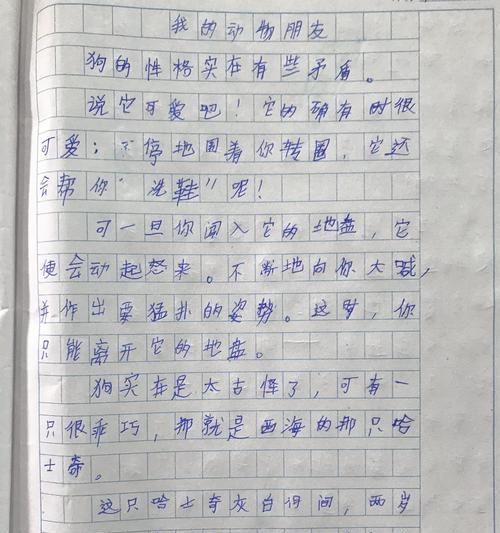 我的动物朋友
狗的性格实在有些矛盾。
说它可爱吧！它的确有时很
可爱；不停地围着你转圈，它还
会帮你“洗鞋”呢！
可一旦你闯入它的地盘，它
便会动起怒来。不断地向你大喊，
并作出要猛扑的姿势。这时，你
只能离开它的地盘。
狗实在是太古怪了，可有一
只很乖巧，那就是西海的那只哈
士奇。
这只哈士奇灰白相间，两岁